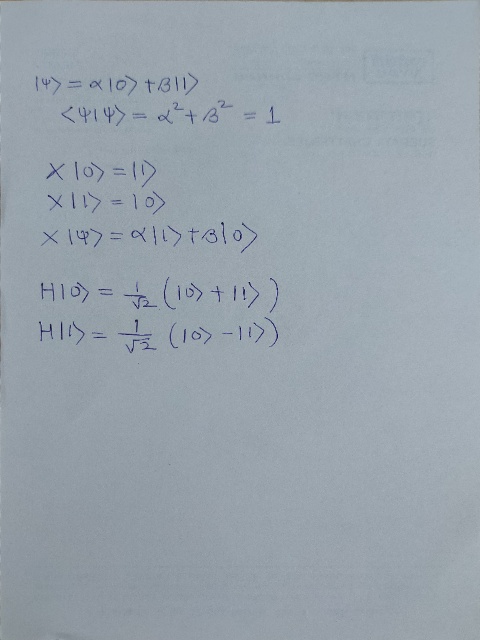 |ψ> = α|0> + β|1>
<ψ|ψ> = α² + β² = 1
X|0> = |1>
X|1> = |0>
X|ψ> = α|1> + β|0>
H|0> = 1/√2 (|0> + |1>)
H|1> = 1/√2 (|0> - |1>)